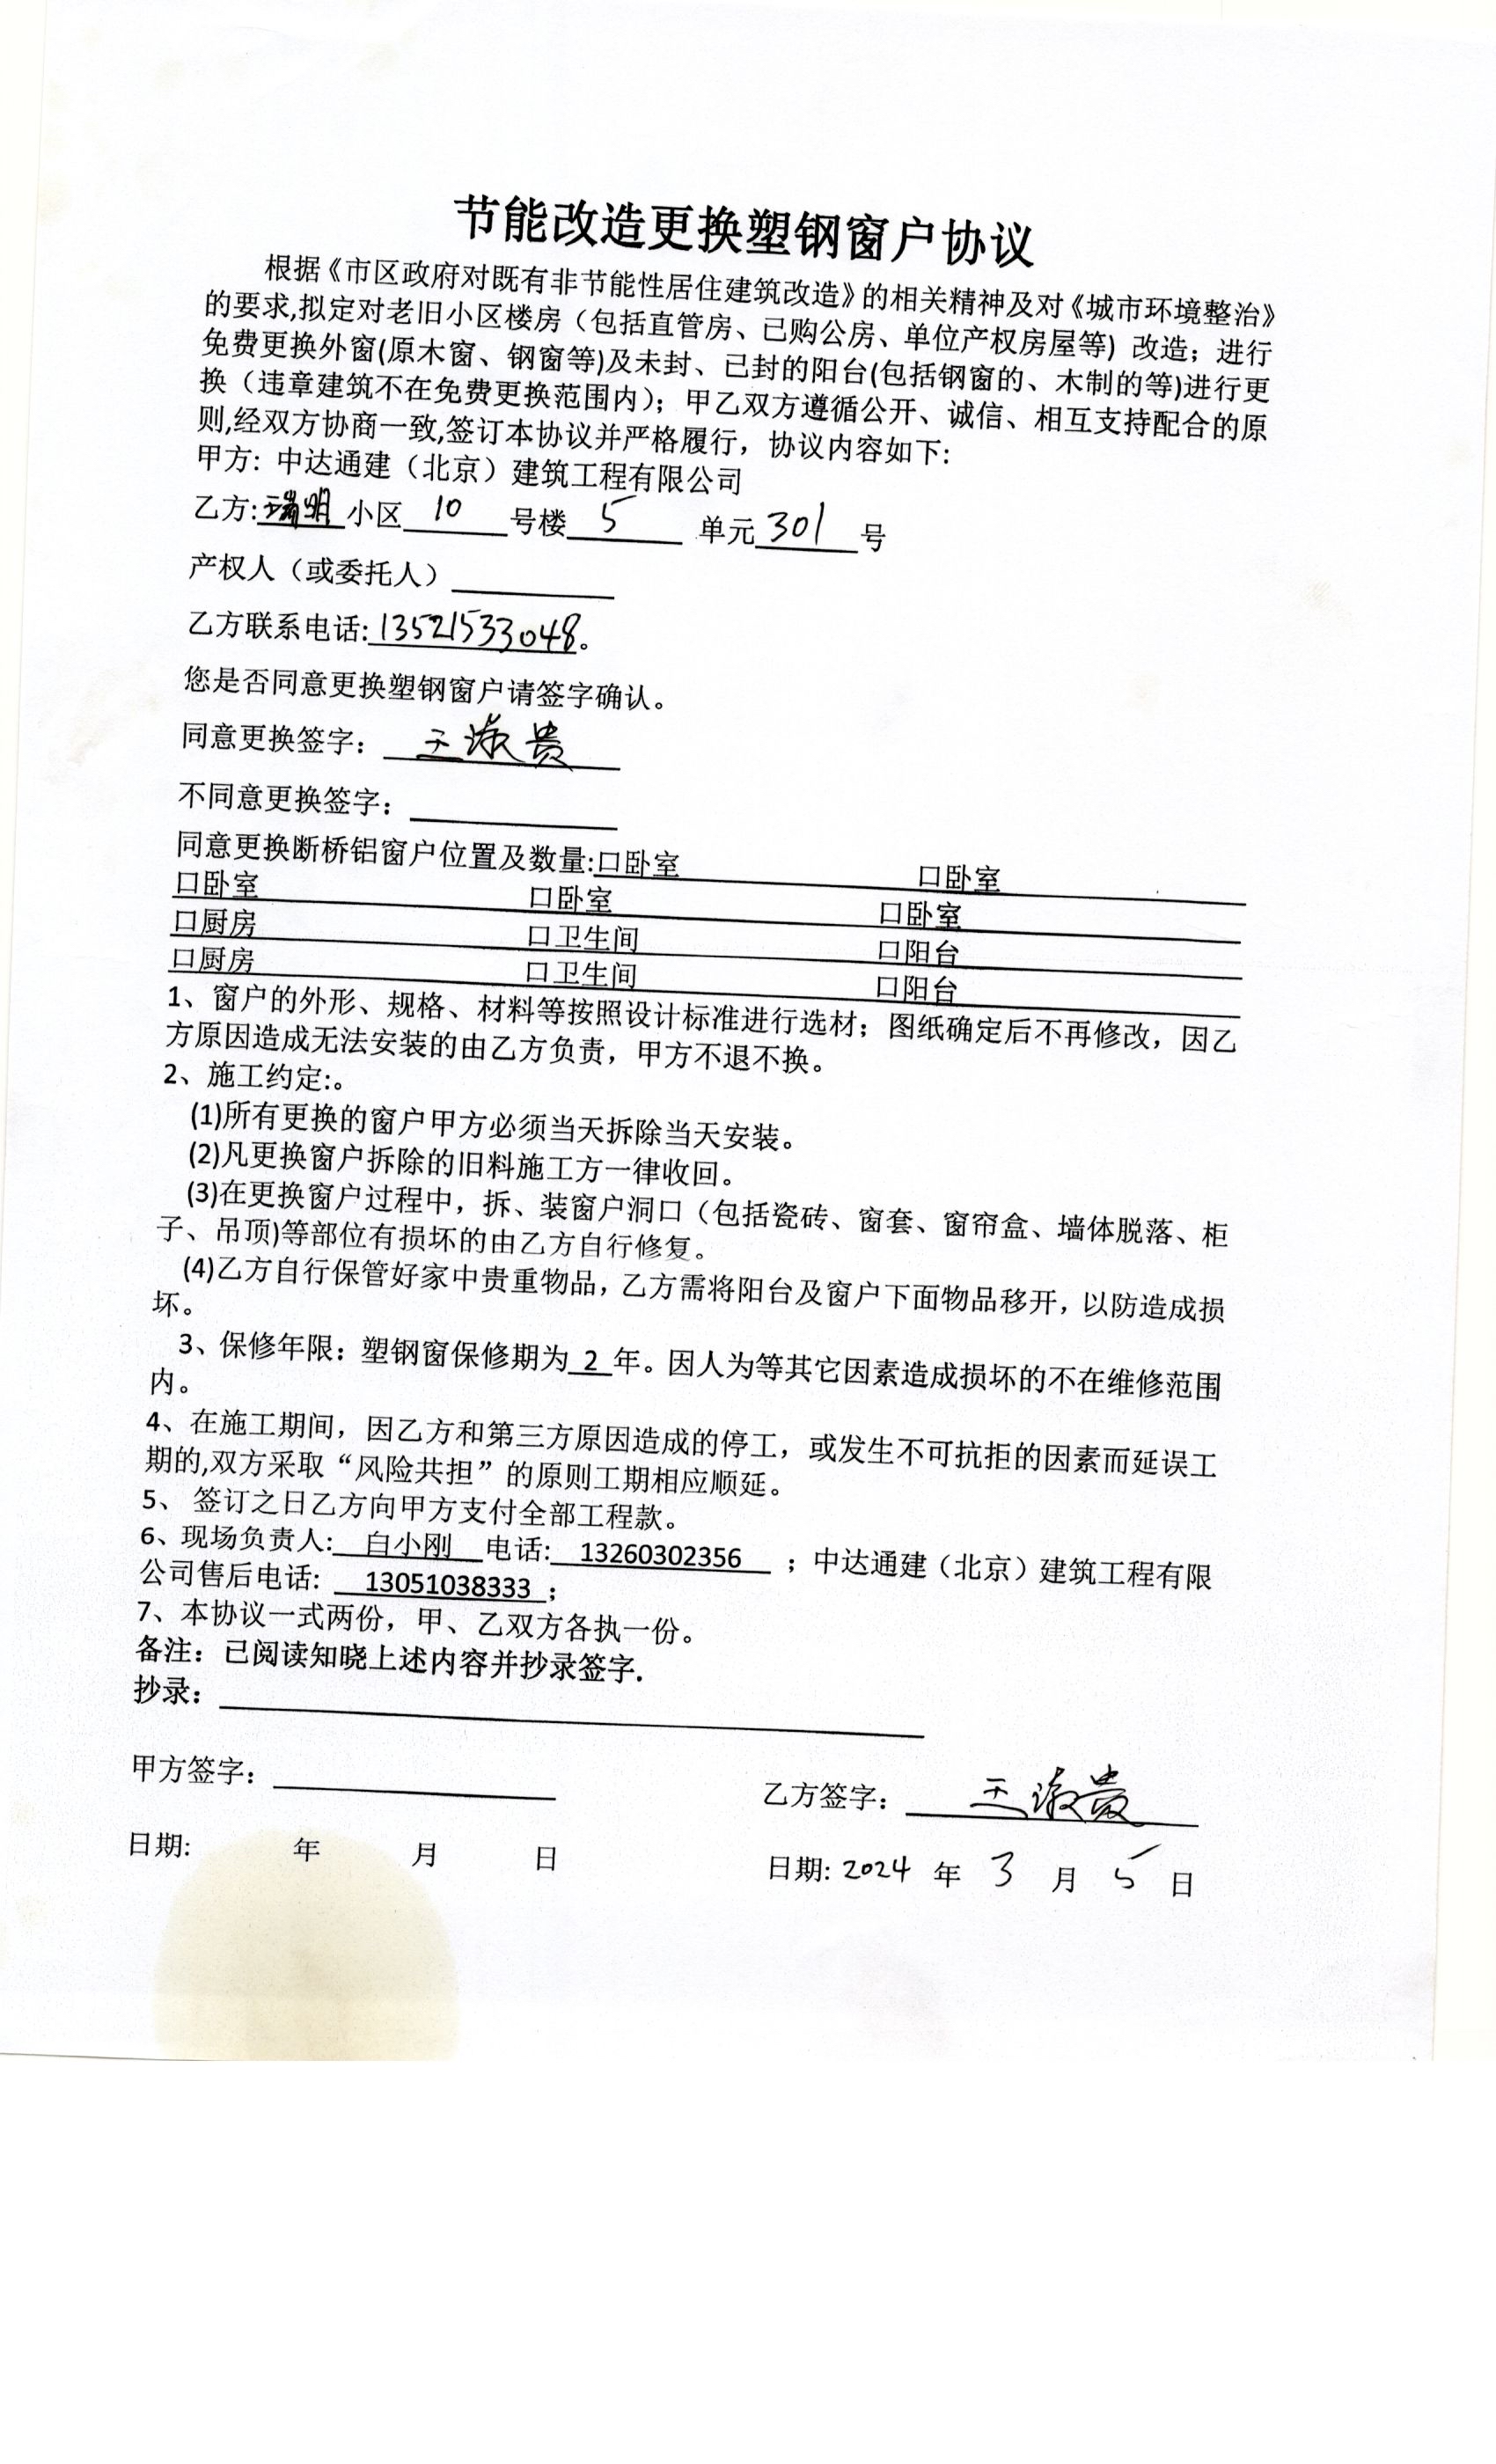 节能改造更换塑钢窗户协议
根据《市区政府对既有非节能性居住建筑改造》的相关精神及对《城市环境整治》
的要求,拟定对老旧小区楼房（包括直管房、已购公房、单位产权房屋等）改造；进行
免费更换外窗(原木窗、钢窗等)及未封、已封的阳台(包括钢窗的、木制的等)进行更
换（违章建筑不在免费更换范围内）；甲乙双方遵循公开、诚信、相互支持配合的原
则,经双方协商一致,签订本协议并严格履行，协议内容如下:
甲方: 中达通建（北京）建筑工程有限公司
乙方:瑞明 小区 10 号楼 5 单元 301 号
产权人（或委托人）
乙方联系电话:13521533048。
您是否同意更换塑钢窗户请签字确认。
同意更换签字： 王淑贵
不同意更换签字：
同意更换断桥铝窗户位置及数量:口卧室 口卧室
口卧室 口卧室 口卧室
口厨房 口卫生间 口阳台
口厨房 口卫生间 口阳台
1、窗户的外形、规格、材料等按照设计标准进行选材；图纸确定后不再修改，因乙
方原因造成无法安装的由乙方负责，甲方不退不换。
2、施工约定:。
(1)所有更换的窗户甲方必须当天拆除当天安装。
(2)凡更换窗户拆除的旧料施工方一律收回。
(3)在更换窗户过程中，拆、装窗户洞口（包括瓷砖、窗套、窗帘盒、墙体脱落、柜
子、吊顶)等部位有损坏的由乙方自行修复。
(4)乙方自行保管好家中贵重物品，乙方需将阳台及窗户下面物品移开，以防造成损
坏。
3、保修年限：塑钢窗保修期为 2 年。因人为等其它因素造成损坏的不在维修范围
内。
4、在施工期间，因乙方和第三方原因造成的停工，或发生不可抗拒的因素而延误工
期的,双方采取“风险共担”的原则工期相应顺延。
5、 签订之日乙方向甲方支付全部工程款。
6、现场负责人: 白小刚 电话: 13260302356 ；中达通建（北京）建筑工程有限
公司售后电话: 13051038333 ；
7、本协议一式两份，甲、乙双方各执一份。
备注：已阅读知晓上述内容并抄录签字.
抄录：
甲方签字： 乙方签字： 王淑贵
日期: 年 月 日 日期: 2024 年 3 月 5 日